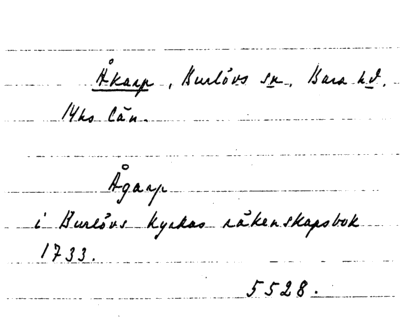 Åkarp, Burlövs sn, Bara hd.
Mhs län.
Ågarp
i Burlövs kyrkas räkenskapsbok
1733.
5528.